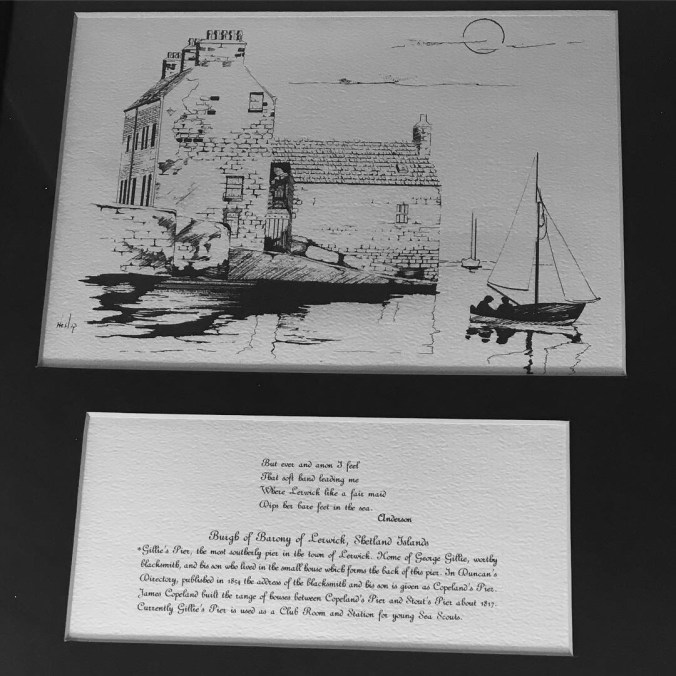 Heslop
But ever and anon I feel
That soft hand leading me
Where Lerwick like a fair maid
Dips her bare feet in the sea.
Anderson
Burgh of Barony of Lerwick, Shetland Islands
"Gillie's Pier, the most southerly pier in the town of Lerwick. Home of George Gillie, worthy
blacksmith, and his son who lived in the small house which forms the back of this pier. In Duncan's
Directory, published in 1854 the address of the blacksmith and his son is given as Copeland's Pier.
James Copeland built the range of houses between Copeland's Pier and Stout's Pier about 1817.
Currently Gillie's Pier is used as a Club Room and Station for young Sea Scouts.